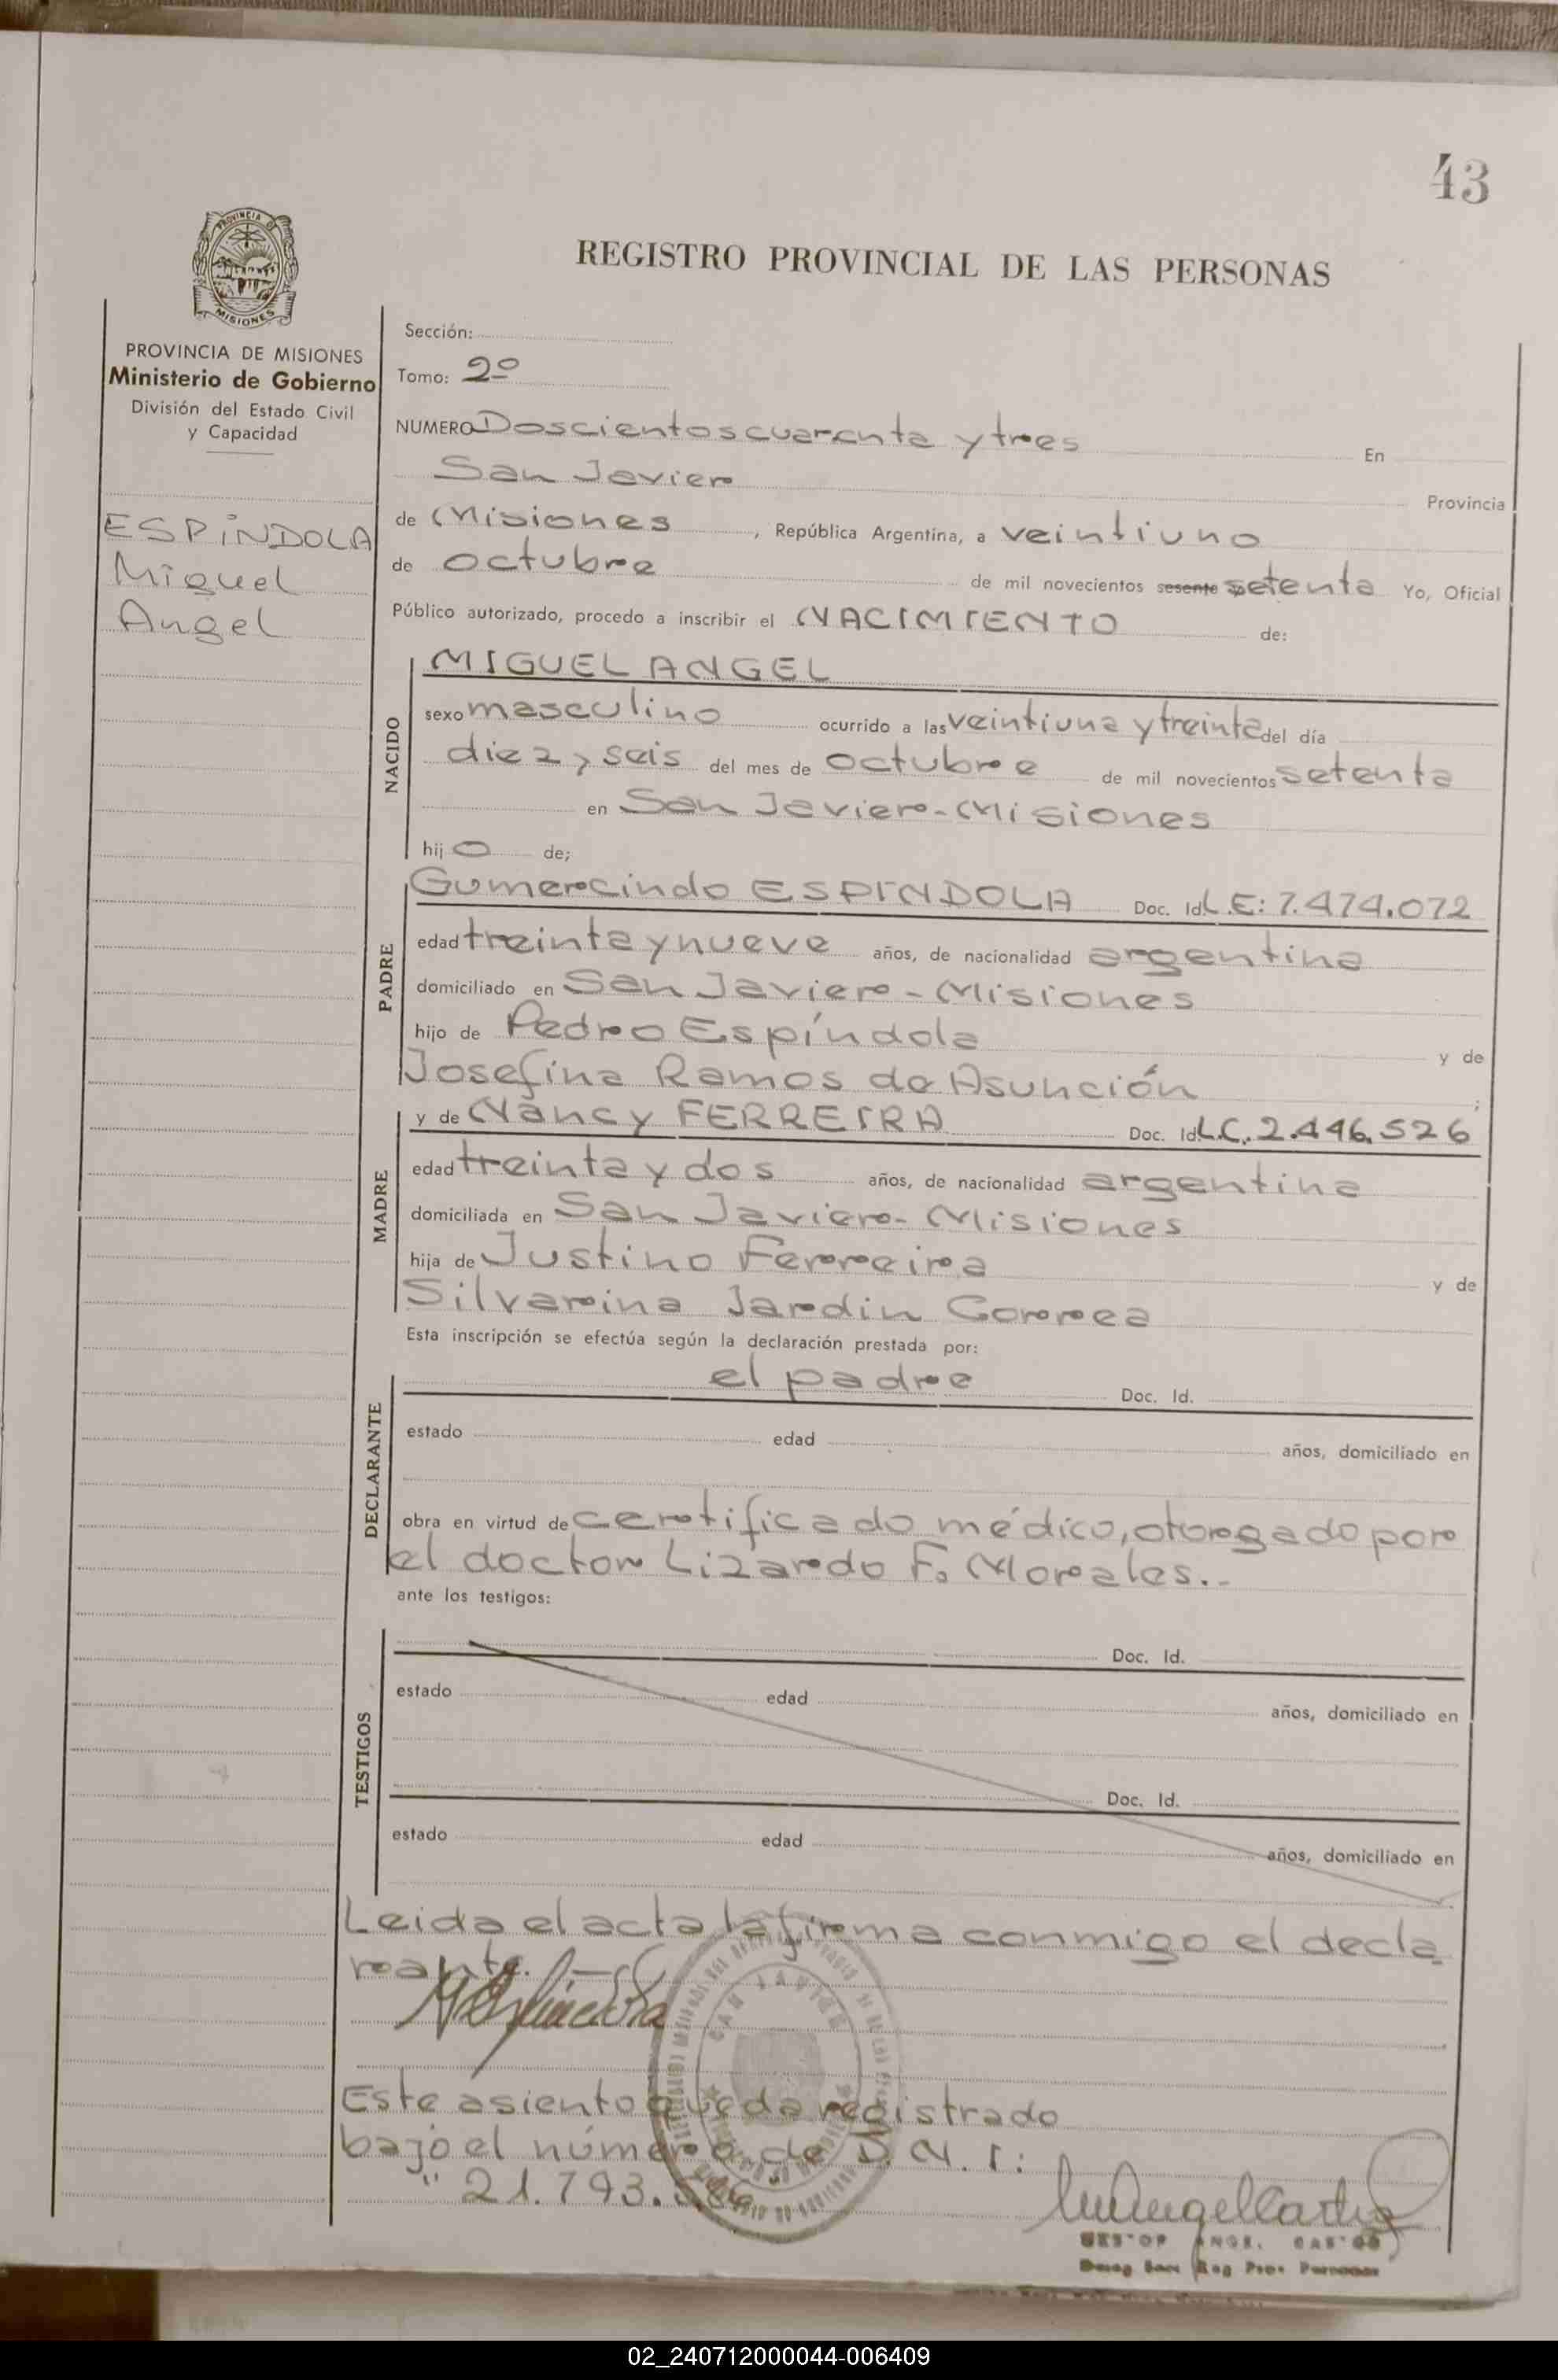 43
PROVINCIA DE MISIONES
REGISTRO PROVINCIAL DE LAS PERSONAS
PROVINCIA DE MISIONES
Ministerio de Gobierno
División del Estado Civil
y Capacidad
ESPINDOLA
Miguel
Angel
Sección:
Tomo: 2º
NUMERO Doscientos cuarenta y tres En
San Javier Provincia
de Misiones, República Argentina, a veintiuno
de octubre de mil novecientos sesente setenta Yo, Oficial
Público autorizado, procedo a inscribir el NACIMIENTO de:
NACIDO
MIGUEL ANGEL
sexo masculino ocurrido a las veintiuna y treinta del día
diez y seis del mes de octubre de mil novecientos setenta
en San Javier-Misiones
hijo de;
PADRE
Gumercindo ESPINDOLA Doc. Id L.E: 7.474.072
edad treinta y nueve años, de nacionalidad argentina
domiciliado en San Javier-Misiones
hijo de Pedro Espíndola y de
Josefina Ramos de Asunción ;
MADRE
y de Nancy FERREIRA Doc. Id L.C. 2.446.526
edad treinta y dos años, de nacionalidad argentina
domiciliada en San Javier-Misiones
hija de Justino Ferreira y de
Silvarina Jardin Correa
Esta inscripción se efectúa según la declaración prestada por:
DECLARANTE
el padre Doc. Id.
estado edad años, domiciliado en
obra en virtud de certificado médico, otorgado por
el doctor Lizardo F. Morales.-
ante los testigos:
TESTIGOS
Doc. Id.
estado edad años, domiciliado en
Doc. Id.
estado edad años, domiciliado en
Leida el acta la firma conmigo el decla
rante.
SAN JAVIER
Este asiento queda registrado
bajo el número de D.N.I:
" 21.793.
02_240712000044-006409